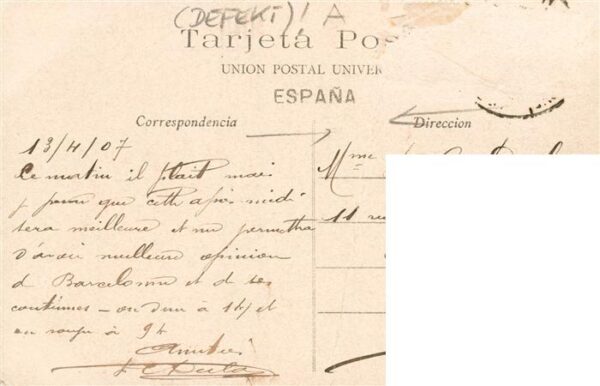 (DEFEKT)! A
Tarjeta Pos
UNION POSTAL UNIVER
ESPAÑA
Correspondencia
Direccion
13/4/07
Ce matin il plait mais
que cette après midi
sera meilleure et me permettra
d'avoir meilleure opinion
de Barcelonne et de ses
coutûmes – on dine à 14 et
on soupe à 9h
Amitiés
Mme
11 rue